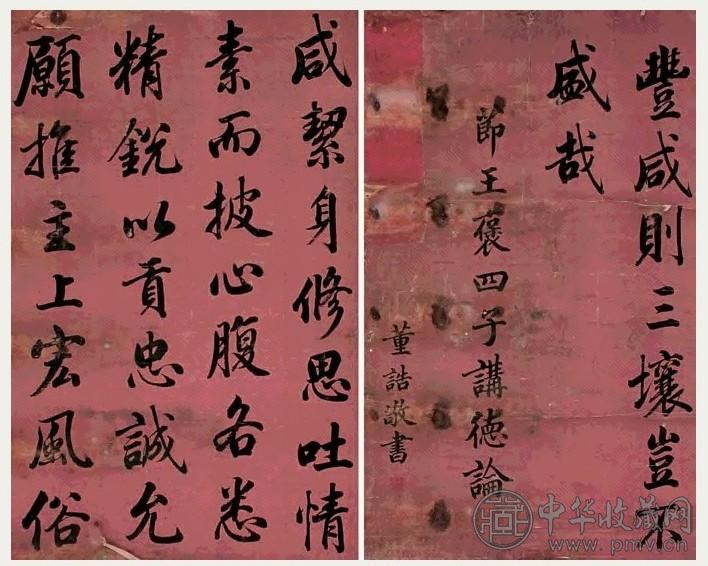 咸絜身修思吐情
素而披心腹各悉
精銳以貢忠誠允
願推主上宏風俗
豐咸則三壤豈不
盛哉
節王褒四子講德論
董誥敬書
中华收藏网
www.pmv.cn